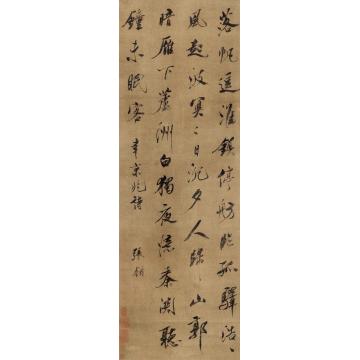 落帆逗淮鎮停舫臨孤驛浩〻
風起波冥〻日沉夕人歸山郭
暗雁下蘆洲白獨夜憶秦關聽
鐘未眠客 韋京兆詩 張